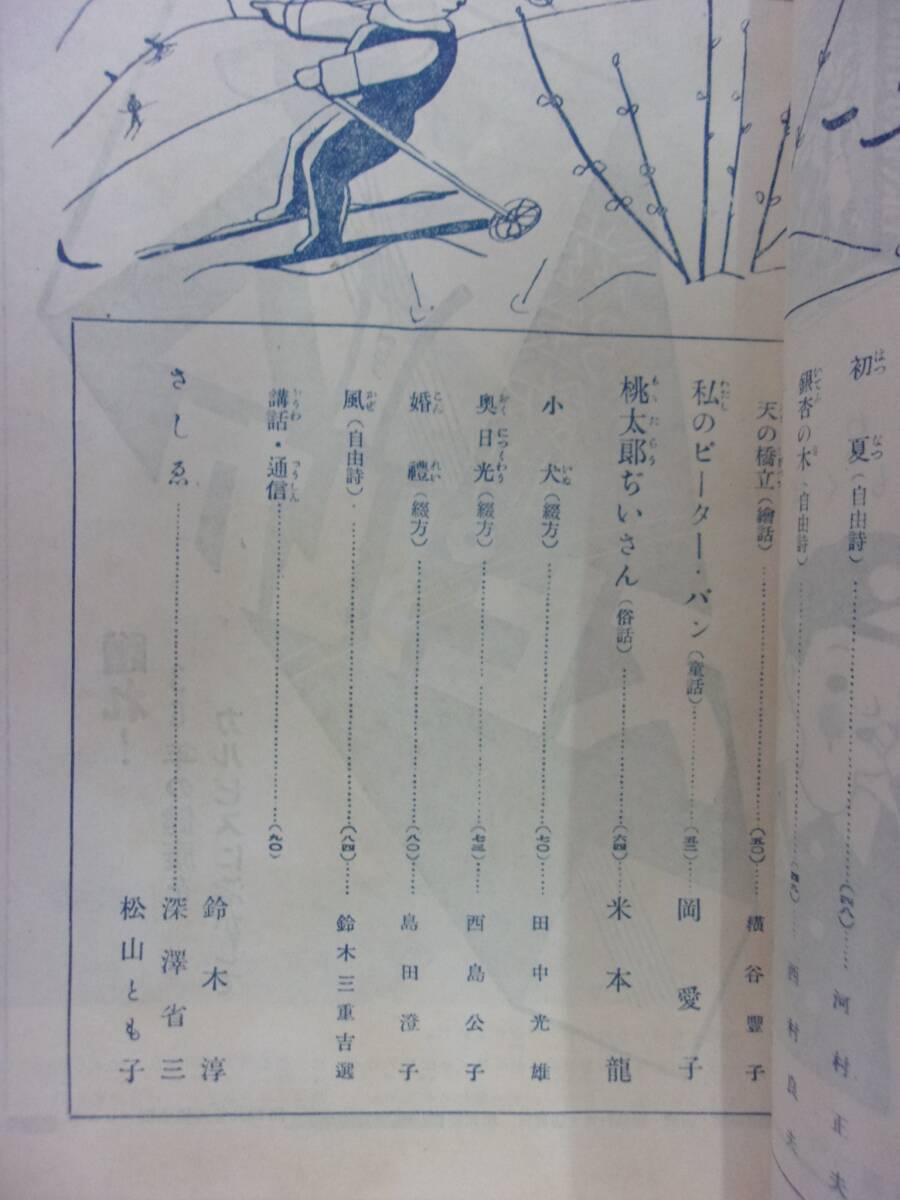 初夏(自由詩)(四八)河村正夫
銀杏の木(自由詩)(四九)西村良夫
天の橋立(繪話)(五〇)横谷豐子
私のピーター・パン(童話)(五二)岡愛子
桃太郎ぢいさん(俗話)(六四)米本龍
小犬(綴方)(七〇)田中光雄
奥日光(綴方)(七三)西島公子
婚禮(綴方)(八〇)島田澄子
風(自由詩)(八四)鈴木三重吉選
講話・通信(九〇)
さしゑ
鈴木淳
深澤省三
松山とも子